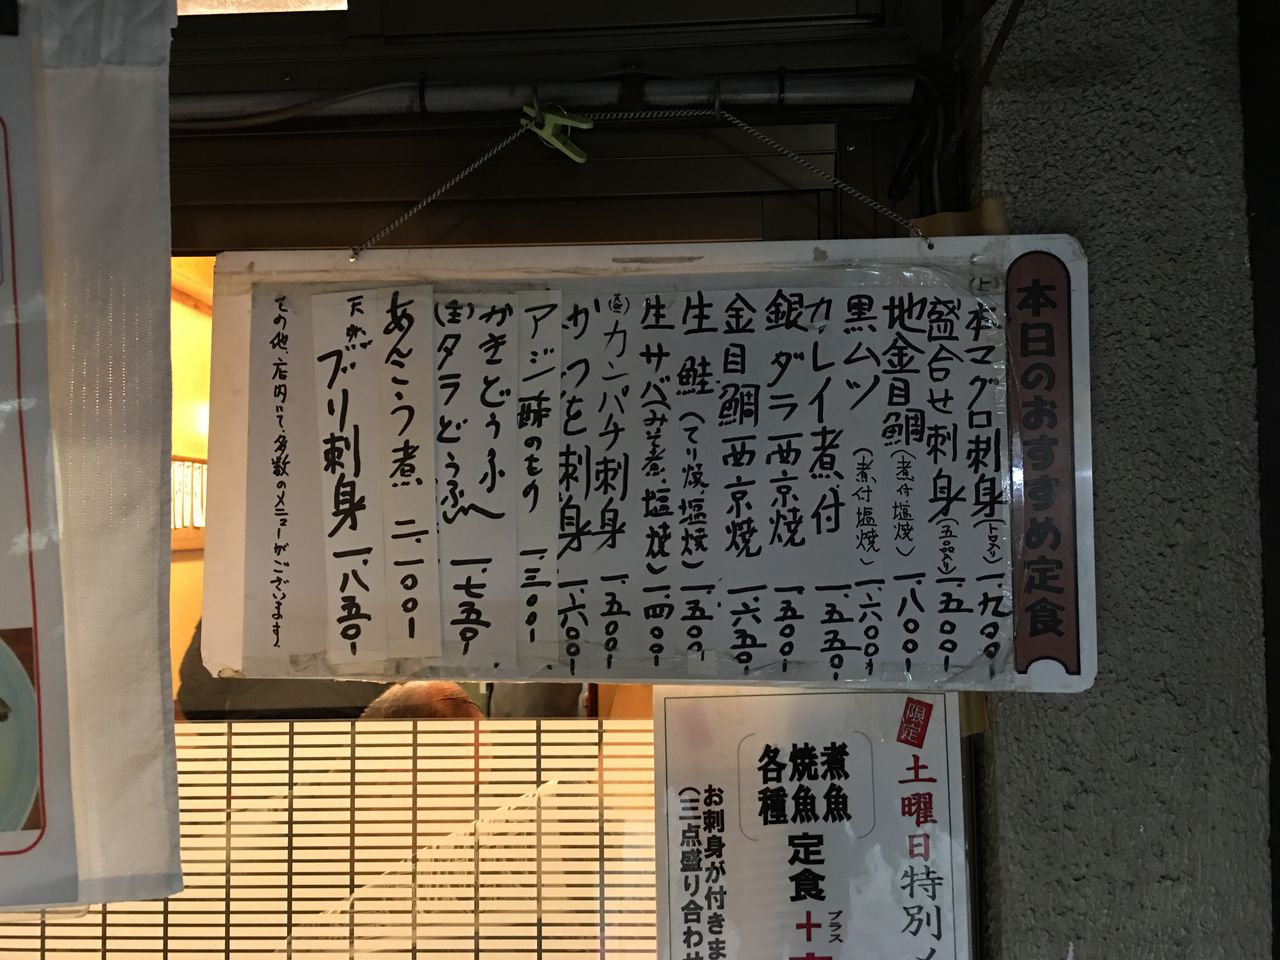 本日のおすすめ定食
(上)本マグロ刺身(トロ入り)一、九〇〇
盛合せ刺身(五品入り)一、五〇〇
地金目鯛(煮付塩焼)一、八〇〇
黒ムツ(煮付塩焼)一、六〇〇
カレイ煮付 一、五五〇
銀ダラ西京焼 一、五〇〇
金目鯛西京焼 一、六五〇
生鮭(てり焼、塩焼)一、五〇〇
生サバ(みそ煮、塩焼)一、四〇〇
カンパチ刺身 一、五〇〇
かつを刺身 一、六〇〇
アジ酢のもの 一、三〇〇
かきどうふ
(生)タラどうふ 一、七五〇
あんこう煮 二、一〇〇
天然ブリ刺身 一、八五〇
その他、店内にて、多数のメニューがございます。
限定
土曜日特別メ
煮魚
焼魚
各種
定食
+
プラス
お刺身が付きま
(三点盛り合わせ